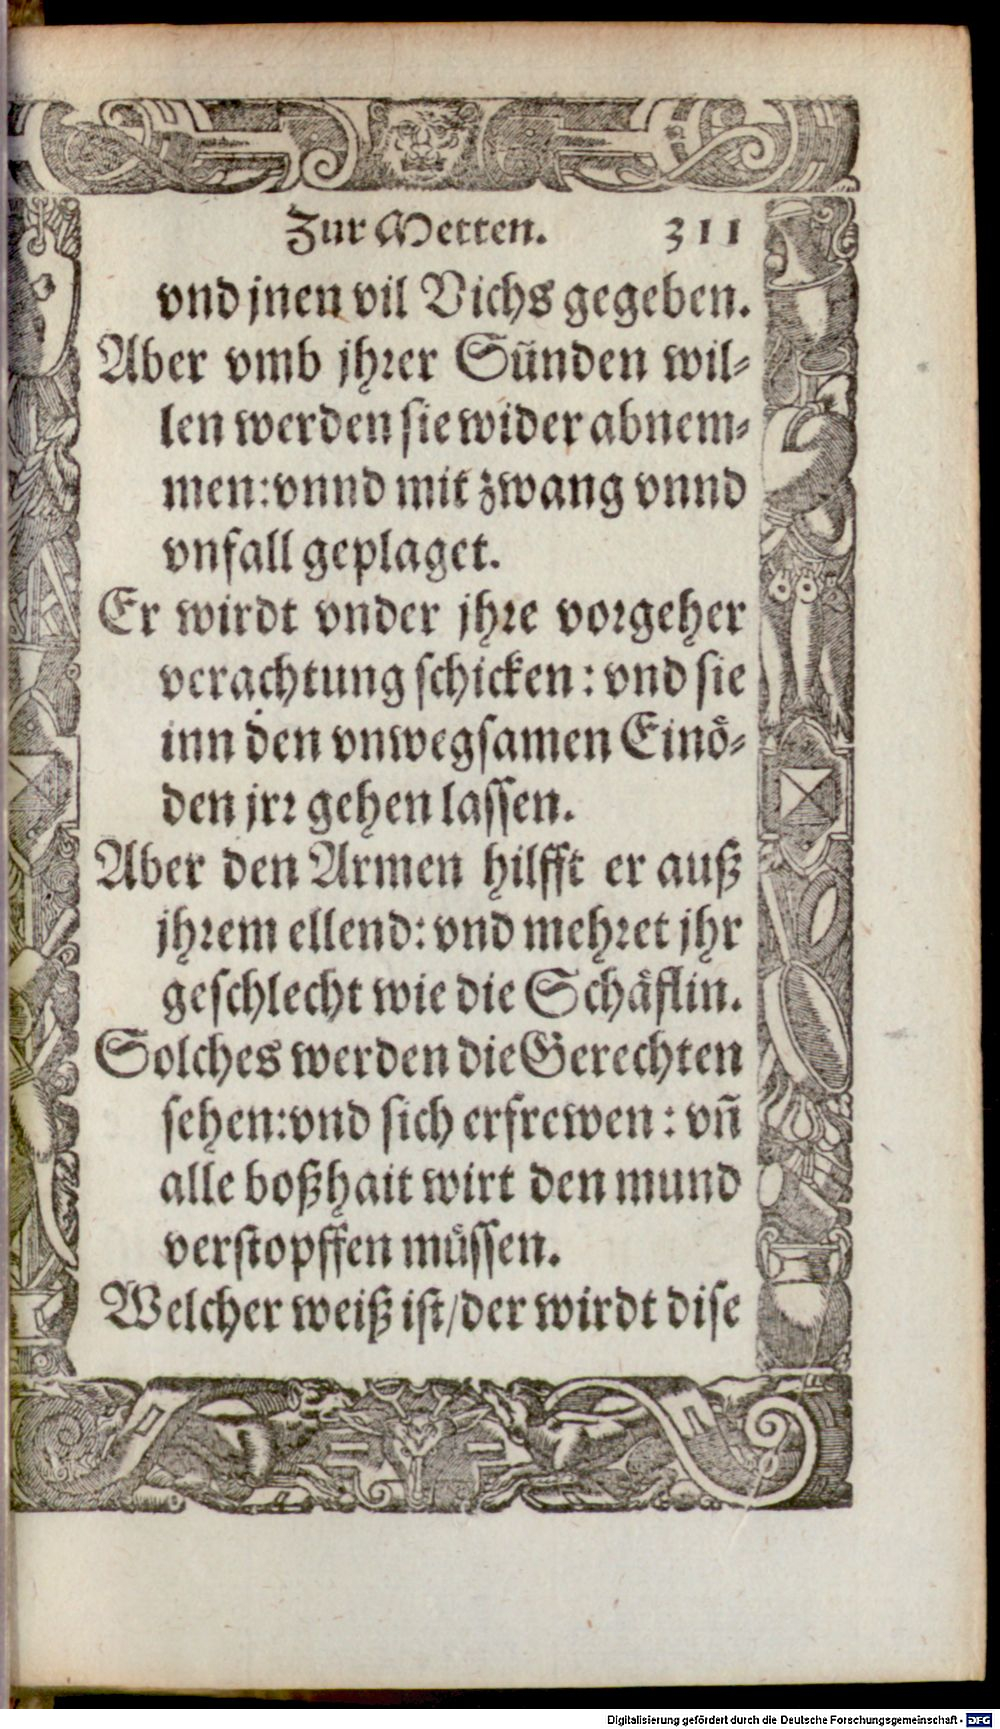 Zur Metten. 311
vnd jnen vil Vichs gegeben.
Aber vmb jhrer Sünden wil-
len werden sie wider abnem-
men: vnnd mit zwang vnnd
vnfall geplaget.
Er wirdt vnder jhre vorgeher
verachtung schicken: vnd sie
inn den vnwegsamen Einö-
den jrr gehen lassen.
Aber den Armen hilfft er auß
jhrem ellend: vnd mehret jhr
geschlecht wie die Schäflin.
Solches werden die Gerechten
sehen: vnd sich erfrewen: vñ
alle boßhait wirt den mund
verstopffen müssen.
Welcher weiß ist/der wirdt dise
Digitalisierung gefördert durch die Deutsche Forschungsgemeinschaft - DFG